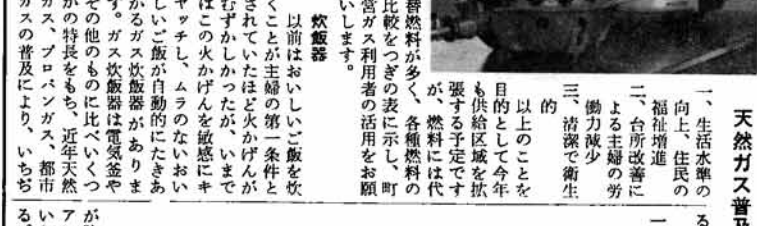 天然ガス普及
一、生活水準の
向上、住民の
福祉増進
二、台所改善に
よる主婦の労
働力減少
三、清潔で衛生
的
以上のことを
目的として今年
も供給区域を拡
張する予定です
が、燃料には代
替燃料が多く、各種燃料の
比較をつぎの表に示し、町
営ガス利用者の活用をお願
いします。
炊飯器
以前はおいしいご飯を炊
くことが主婦の第一条件と
されていたほど火かげんが
むずかしかったが、いまで
はこの火かげんを敏感にキ
ャッチし、ムラのないおい
しいご飯が自動的にたきあ
がるガス炊飯器がありま
す。ガス炊飯器は電気釜や
その他のものに比べいくつ
かの特長をもち、近年天然
ガス、プロパンガス、都市
ガスの普及により、いちぢ
る
一
が
ア
い
る